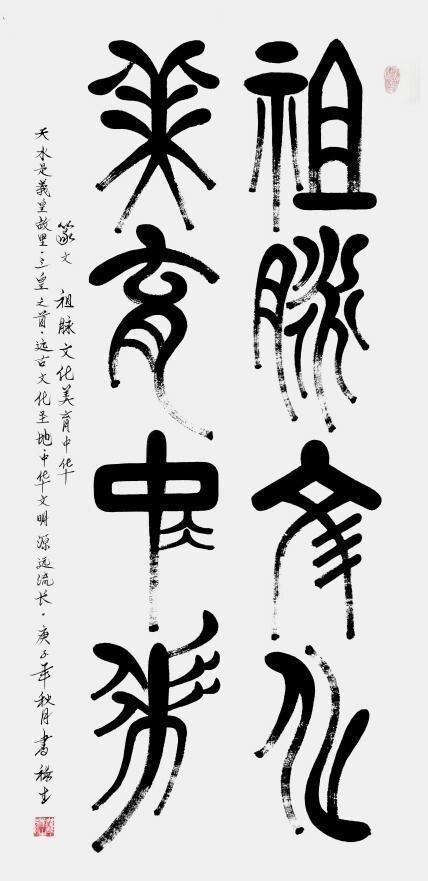 祖脉文化
美育中华
篆文 祖脉文化美育中华
天水是羲皇故里·三皇之首·远古文化圣地·中华文明源远流长。庚子年秋月书